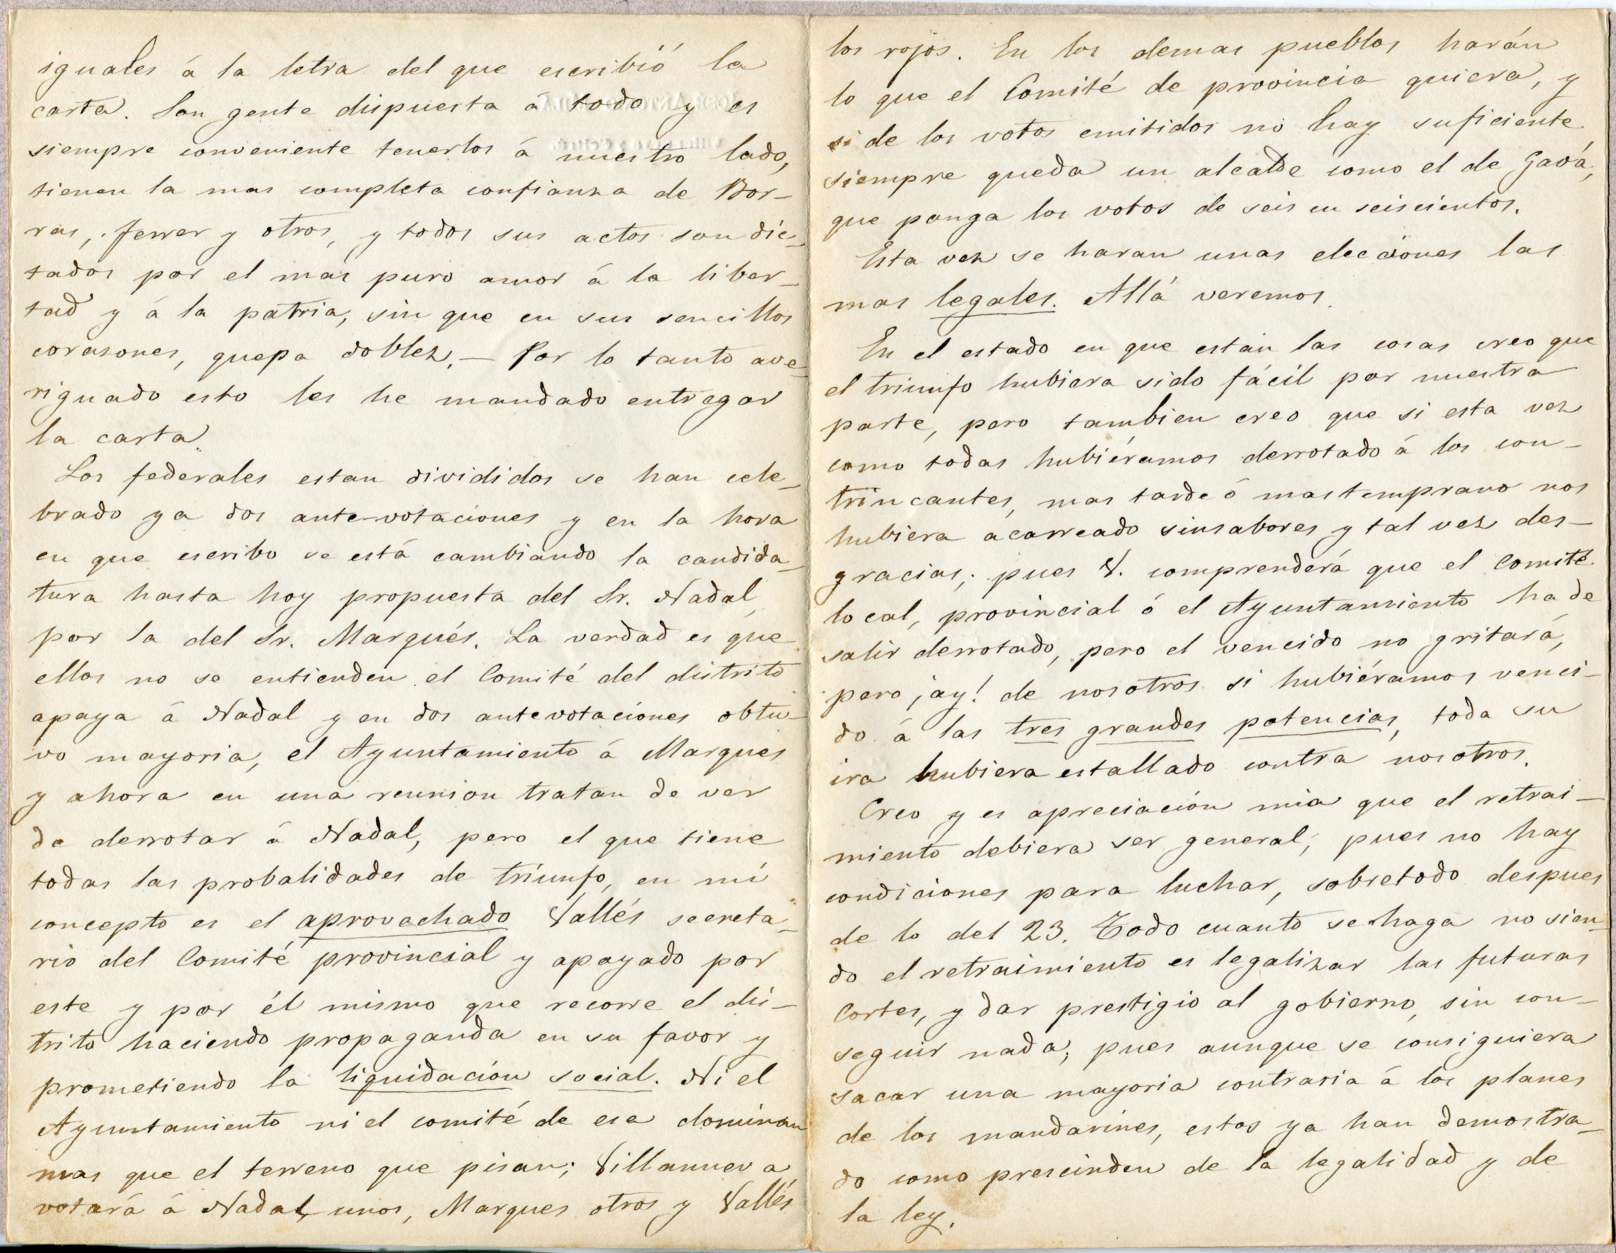 iguales á la letra del que escribió la
carta. Son gente dispuesta a todo y es
siempre conveniente tenerlos á nuestro lado,
tienen la mas completa confianza de Bor-
ras, Ferrer y otros, y todos sus actos son dic-
tados por el mas puro amor á la liber-
tad y á la patria, sin que en sus sencillos
corasones, quepa doblez. — Por lo tanto ave-
riguado esto les he mandado entregar
la carta.
Los federales estan divididos se han cele-
brado ya dos ante-votaciones y en la hora
en que escribo se está cambiando la candida-
tura hasta hoy propuesta del Sr. Nadal,
por la del Sr. Marqués. La verdad es que
ellos no se entienden el Comité del distrito
apaya á Nadal y en dos antevotaciones obtu-
vo mayoria, el Ayuntamiento á Marques
y ahora en una reunion tratan de ver
de derrotar á Nadal, pero el que tiene
todas las probalidades de triunfo, en mi
concepto es el aprovachado Vallés secreta-
rio del Comité provincial y apoyado por
este y por él mismo que recorre el dis-
trito haciendo propaganda en su favor y
prometiendo la liquidación social. Ni el
Ayuntamiento ni el comité de esa dominan
mas que el terreno que pisan; Villanueva
votará á Nadal, unos, Marques otros y Vallés
los rojos. En los demas pueblos harán
lo que el Comité de provincia quiera, y
si de los votos emitidos no hay suficiente
siempre queda un alcalde como el de Gavá,
que ponga los votos de seis en seiscientos.
Esta vez se haran unas elecciones las
mas legales. Allá veremos.
En el estado en que están las cosas creo que
el triunfo hubiera sido fácil por nuestra
parte, pero tambien creo que si esta vez
como todas hubiéramos derrotado á los con-
trincantes, mas tarde ó mas temprano nos
hubiera acarreado sinsabores y tal vez des-
gracias; pues V. comprenderá que el Comité
local, provincial ó el Ayuntamiento ha de
salir derrotado, pero el vencido no gritará,
pero ¡ay! de nosotros si hubiéramos venci-
do á las tres grandes potencias, toda su
ira hubiera estallado contra nosotros.
Creo y es apreciación mia que el retrai-
miento debiera ser general, pues no hay
condiciones para luchar, sobretodo despues
de lo del 23. Todo cuanto se haga no sien-
do el retraimiento es legalizar las futuras
Cortes, y dar prestigio al gobierno, sin con-
seguir nada, pues aunque se consiguiera
sacar una mayoria contraria á los planes
de los mandarines, estos ya han demostra-
do como prescinden de la legalidad y de
la ley.